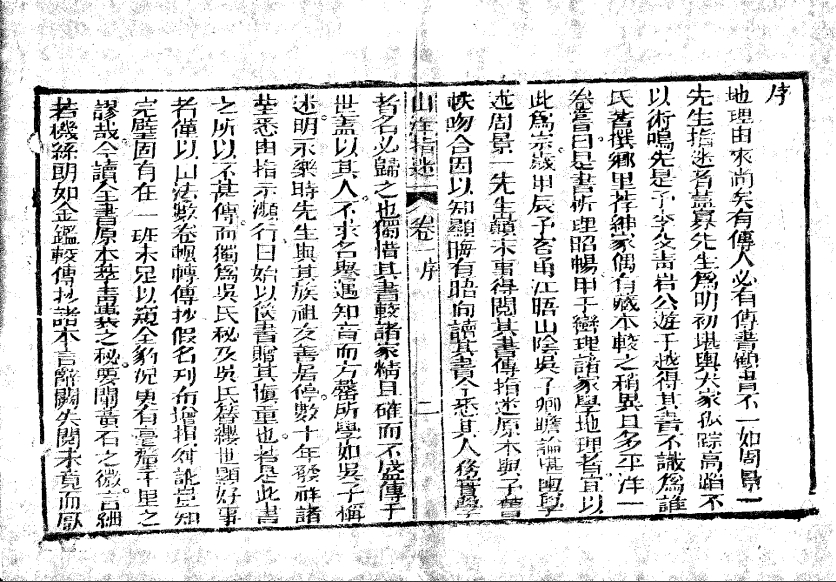 序
地理由來尚矣有傳人必有傳書顧書不一如周景一
先生指迷者蓋寡先生爲明初堪輿大家孤踪高蹈不
以術鳴先是予季父青岩公遊于越得其書不識爲誰
氏著撰鄉里荐紳家偶有藏本較之稍異且多平洋一
卷嘗曰是書析理昭暢甲于巒理諸家學地理者宜以
此爲宗歲甲辰予客甬江晤山陰吳子卿瞻論堪輿學
述周景一先生顛末事得閲其書傳指迷原本與予曹
帙吻合因以知顯晦有時向讀其書今悉其人務實學
山洋指迷 卷一序 二
者名必歸之也獨惜其書較諸家精且確而不盛傳于
世蓋以其人不求名譽遇知音而方罄所學如吳子稱
述明永樂時先生與其族祖友善居停數十年發祥諸
塋悉由指示瀕行日始以侯書贈其愼重也若是此書
之所以不甚傳而獨爲吳氏秘及吳氏簪纓世顯好事
者僅以山法數卷輾轉傳抄假名刋布增指舛訛豈知
完璧固有在一班未足以窺全豹况更有毫釐千里之
謬哉今讀全書原本基青囊之秘要闡黃石之微言細
若機絲朗如金鑑較傳抄諸本言辭闕失閲未竟而厭